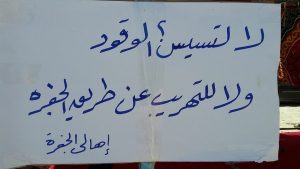 لا لتسيس؟ الوقود
ولا للتهريب عن طريق الجفره
إهالى الجفرة